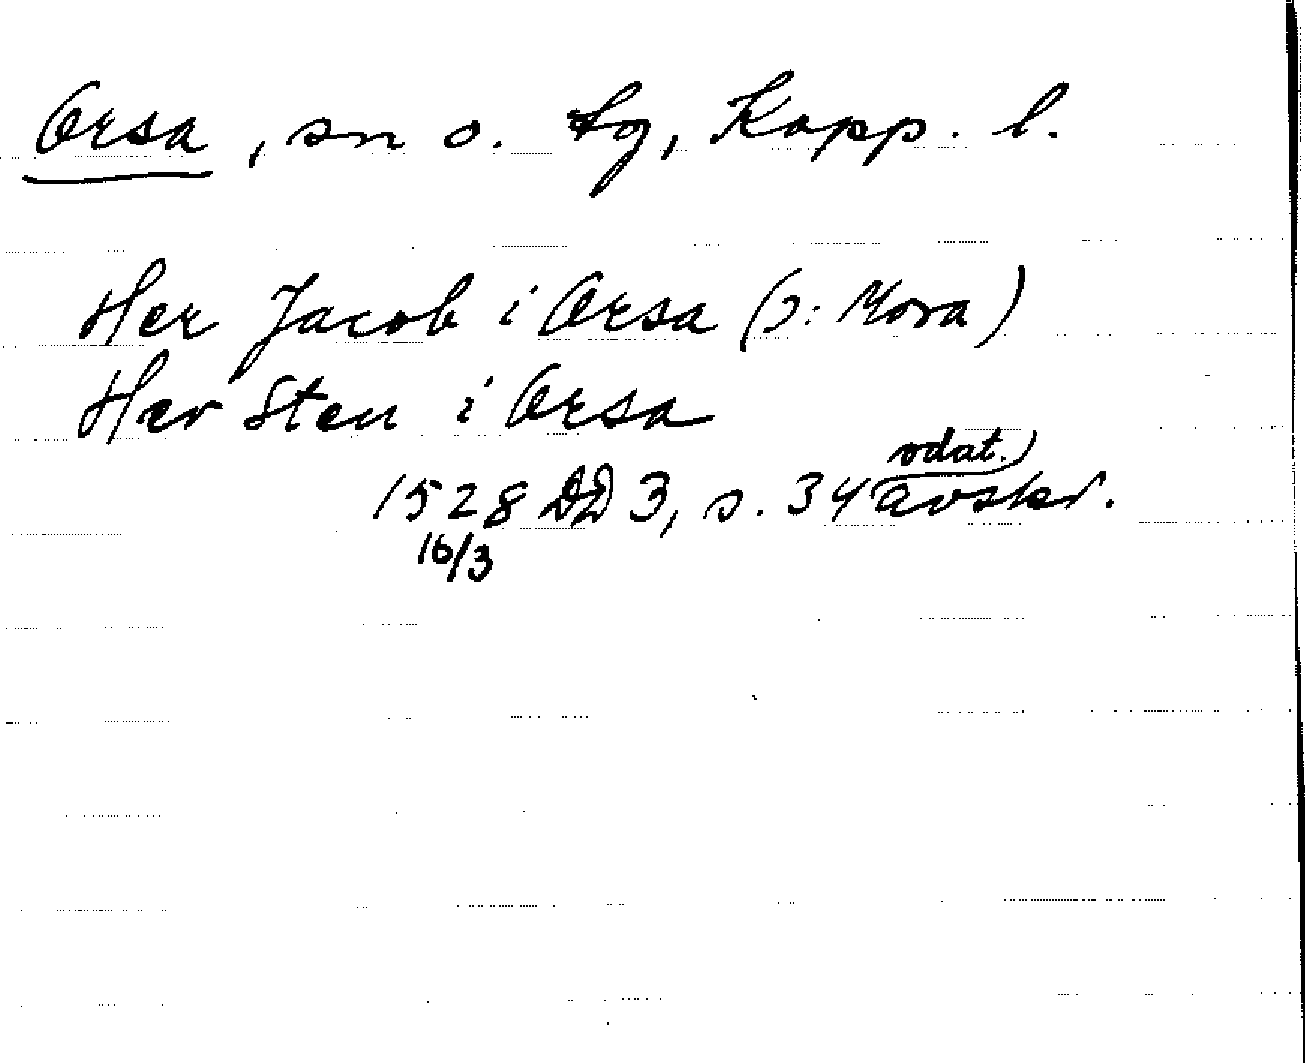 Orsa, sn o. tg, Kopp. l.
Her Jacob i Orsa (ɔ: Mora)
Her Sten i Orsa
odat.)
1528 DD 3, s. 34 avskr.
16/3